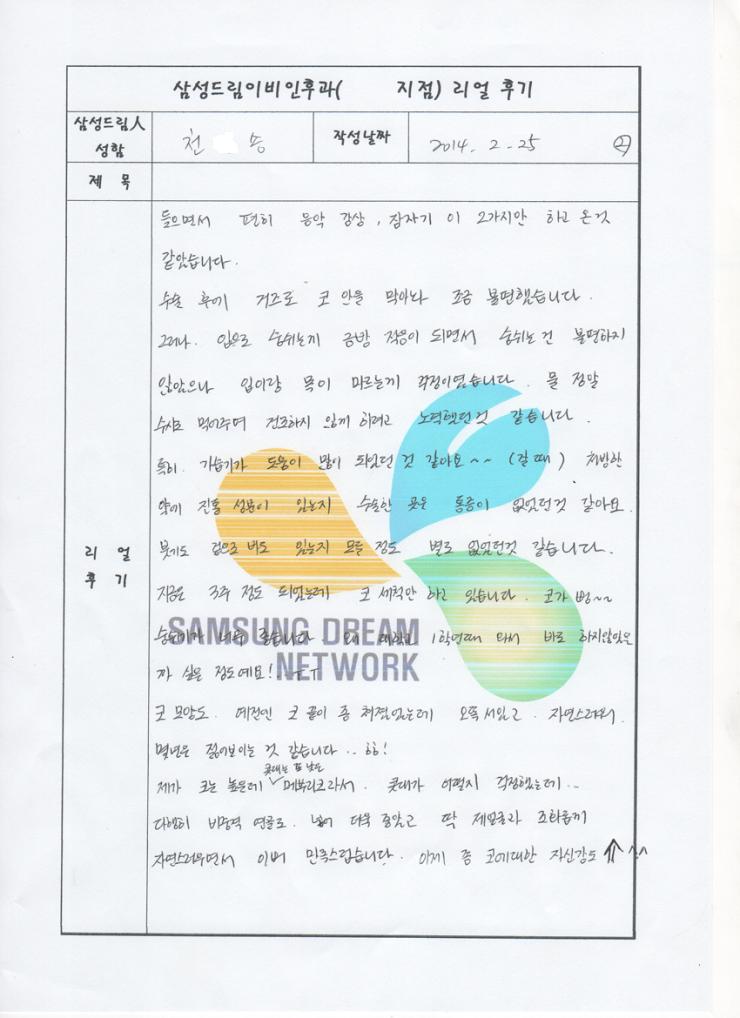 삼성드림이비인후과( 지점) 리얼 후기
삼성드림人 성함
천 승
작성날짜
2014. 2-25
②
제 목
리 얼 후 기
들으면서 편히 음악 감상, 잠자기 이 2가지만 하고 온것
같았습니다.
수술 후에 거즈로 코 안을 막아놔 조금 불편했습니다.
그러나. 입으로 숨쉬는게 금방 적응이 되면서 숨쉬는 건 불편하지
않았으나 입이랑 목이 마르는게 걱정이였습니다. 물 정말
수시로 먹어주며 건조하지 않게 하려고 노력했던것 같습니다.
특히. 가습기가 도움이 많이 되었던 것 같아요~~ (잘 때) 처방한
약에 진통 성분이 있는지 수술한 곳은 통증이 없었던것 같아요.
붓기도 겉으로 봐도 있는지 모를 정도 별로 없었던것 같습니다.
지금은 3주 정도 되었는데 코 세척만 하고 있습니다. 코가 뻥~~
숨쉬기가 너무 좋습니다 왜 대학교 1학년때 와서 바로 하지않았을
까 싶은 정도예요!. ㅜㅜ
코 모양도. 예전엔 코 끝이 좀 처졌었는데 오똑 서있고. 자연스러워.
몇년은 젊어보이는 것 같습니다.. 하하!
제가 코는 높은데 콧대는 휜 낮은 메부리코라서. 콧대가 어떨지 걱정했는데..
다행히 비중격 연골로. 넣어 더욱 좋았고 딱 제얼굴과 조화롭게
자연스러우면서 이뻐 만족스럽습니다. 이제 좀 코에대한 자신감도 ⇑ ^^
SAMSUNG DREAM
NETWORK